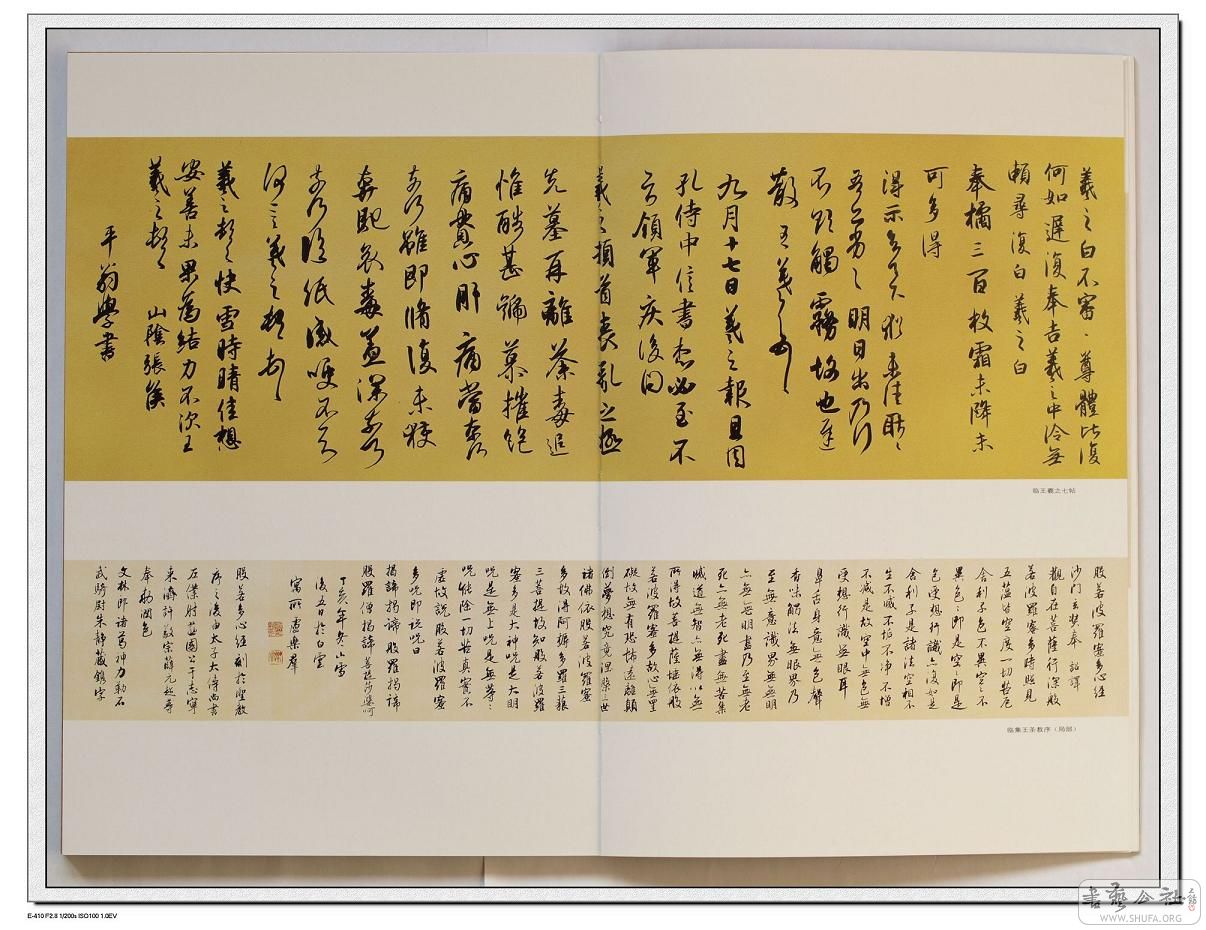 羲之白不審尊體比復
何如遲復奉告羲之中冷無
賴尋復白羲之白
奉橘三百枚霜未降未
可多得
得示知足下猶未佳耿耿
吾亦劣劣明日出乃行
不欲觸霧故也遲
散王羲之頓首
九月十七日羲之報且因
孔侍中信書想必至不
知領軍疾後問
羲之頓首喪亂之極
先墓再離荼毒追
惟酷甚號慕摧絕
痛貫心肝痛當奈何
奈何雖即脩復未獲
奔馳哀毒益深奈何
奈何臨紙感哽不知
何言羲之頓首
羲之頓首快雪時晴佳想
安善未果為結力不次王
羲之頓首 山陰張侯
平翁學書
临王羲之七帖
般若波羅蜜多心經
沙門玄奘奉 詔譯
觀自在菩薩行深般
若波羅蜜多時照見
五蘊皆空度一切苦厄
舍利子色不異空空不
異色色即是空空即是
色受想行識亦復如是
舍利子是諸法空相不
生不滅不垢不淨不增
不減是故空中無色無
受想行識無眼耳
鼻舌身意無色聲
香味觸法無眼界乃
至無意識界無無明
亦無無明盡乃至無老
死亦無老死盡無苦集
滅道無智亦無得以無
所得故菩提薩埵依般
若波羅蜜多故心無罣
礙故無有恐怖遠離顛
倒夢想究竟涅槃三世
諸佛依般若波羅蜜
多故得阿耨多羅三藐
三菩提故知般若波羅
蜜多是大神咒是大明
咒是無上咒是無等等
咒能除一切苦真實不
虛故說般若波羅蜜
多咒即說咒曰
揭諦揭諦般羅揭諦
般羅僧揭諦菩提莎婆呵
丁亥年冬小雪
後五日於白雲
寓所盧樂群
般若多心經刻於聖教
序之後由太子太傅尚書
左僕射燕國公于志寧
來濟許敬宗薛元超等
奉勅潤色
文林郎諸葛神力勒石
武騎尉朱靜藏鐫字
临集王圣教序（局部）
書藝公社
WWW.SHUFA.ORG
E-410 F2.8 1/200s ISO100 1.0EV